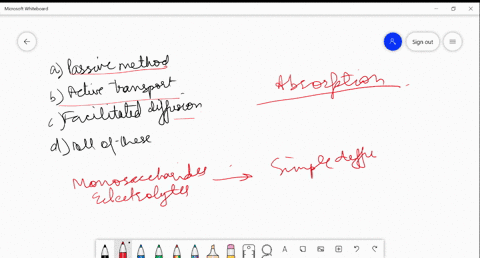 Microsoft Whiteboard
Sign out
a) Passive method
b) Active transport
c) Facilitated diffusion
d) all of these
Absorption
Monosaccharides
Electrolytes
Simple diffu